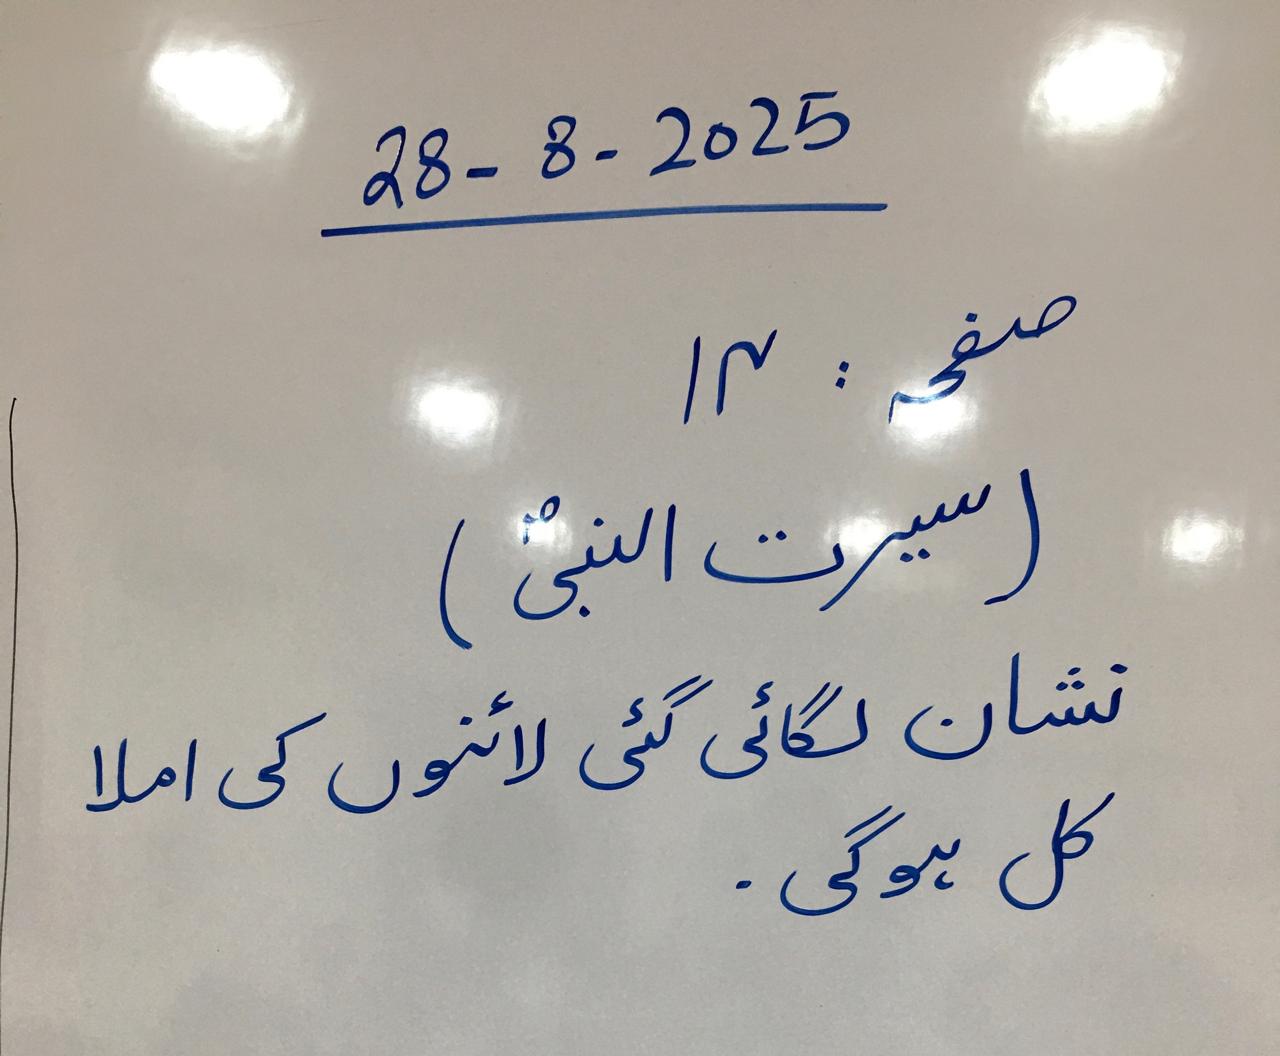 28-8-2025
صفحہ : ۱۳
(سیرت النبیؐ)
نشان لگائی گئی لائنوں کی املا
کل ہوگی .